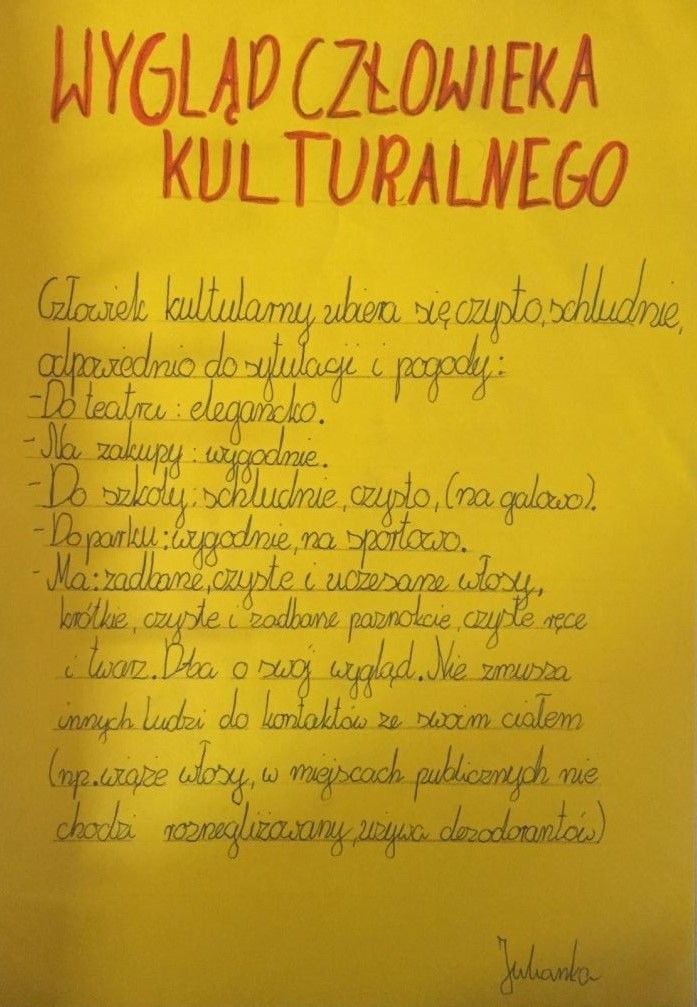 WYGLĄD CZŁOWIEKA
KULTURALNEGO
Człowiek kultularny ubiera się czysto, schludnie,
odpowiednio do sytulagi i pogody:
- Do teatru: elegancko.
- Na zakupy: wygodnie.
- Do szkoły: schludnie, czysto, (na galowo).
- Do parku: wygodnie, na sportowo.
- Ma: zadbane, czyste i uczesane włosy,
krótkie, czyste i zadbane paznokcie, czyste ręce
i twarz. Dba o swój wygląd. Nie zmusza
innych ludzi do kontaktów ze swoim ciałem
(np. wiąże włosy, w miejscach publicznych nie
chodzi roznegliżowany, używa dezodorantów)
Julianka